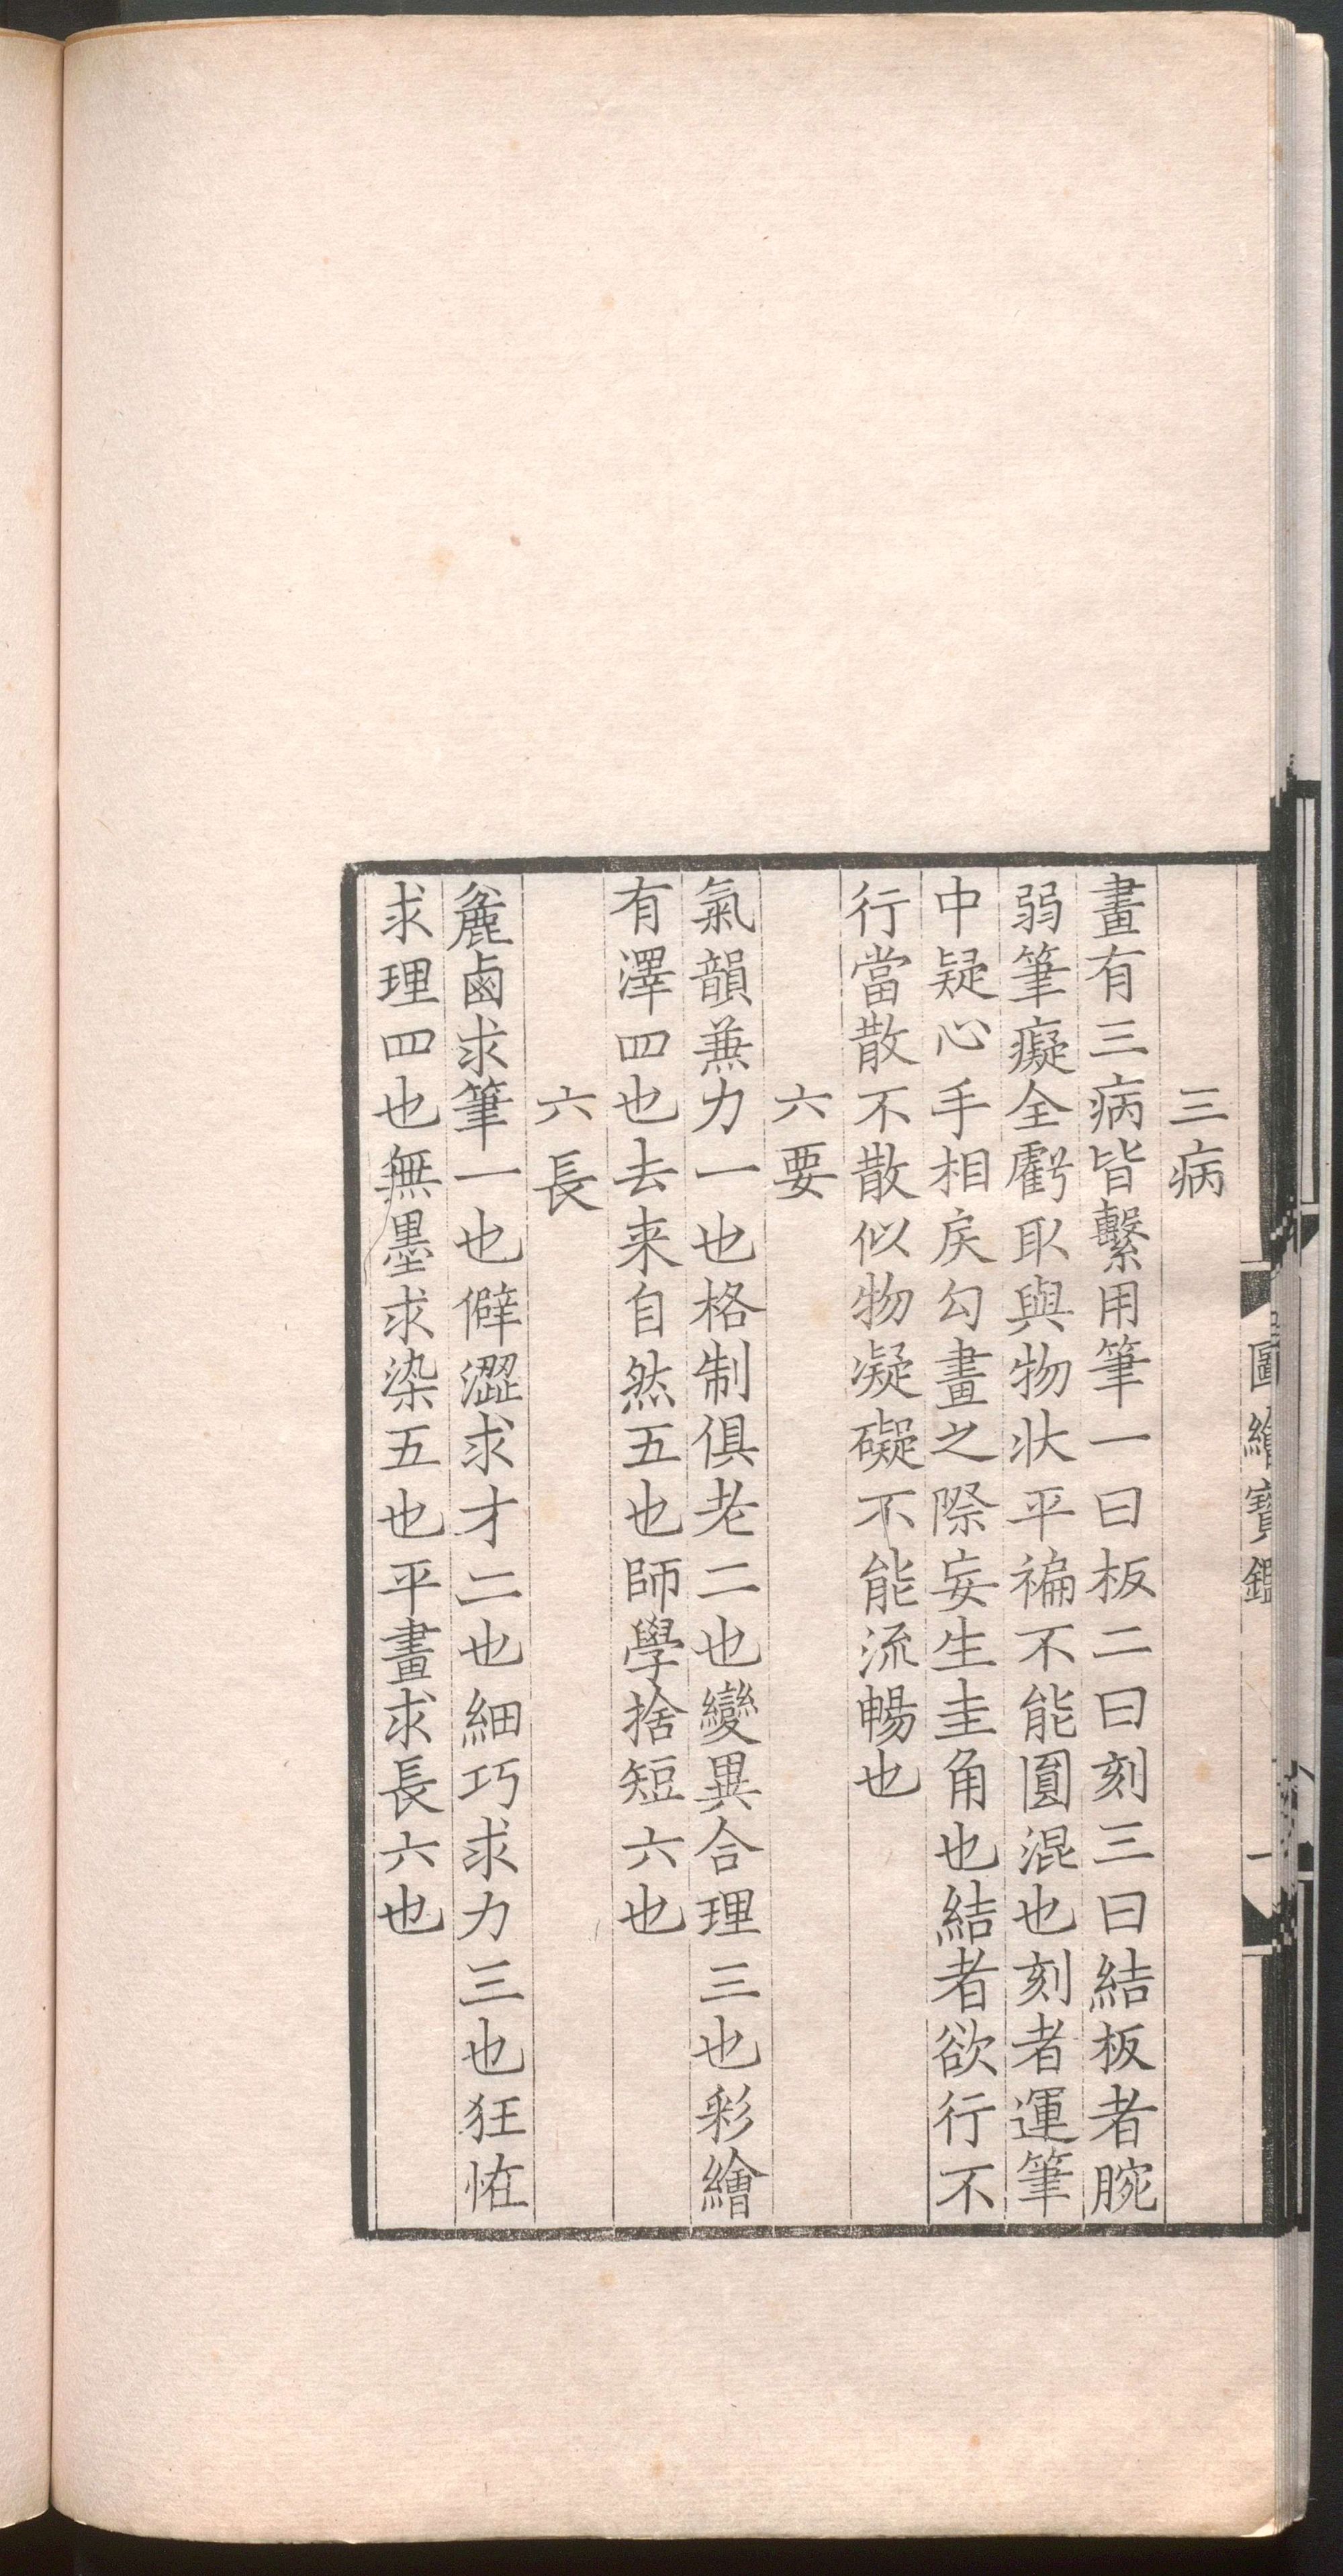 三病
畫有三病皆繫用筆一曰板二曰刻三曰結板者腕
弱筆癡全虧取與物狀平褊不能圓混也刻者運筆
中疑心手相戾勾畫之際妄生圭角也結者欲行不
行當散不散似物凝礙不能流暢也
六要
氣韻兼力一也格制俱老二也變異合理三也彩繪
有澤四也去来自然五也師學捨短六也
六長
麄鹵求筆一也僻澀求才二也細巧求力三也狂恠
求理四也無墨求染五也平畫求長六也
圖繪寶鑑
一